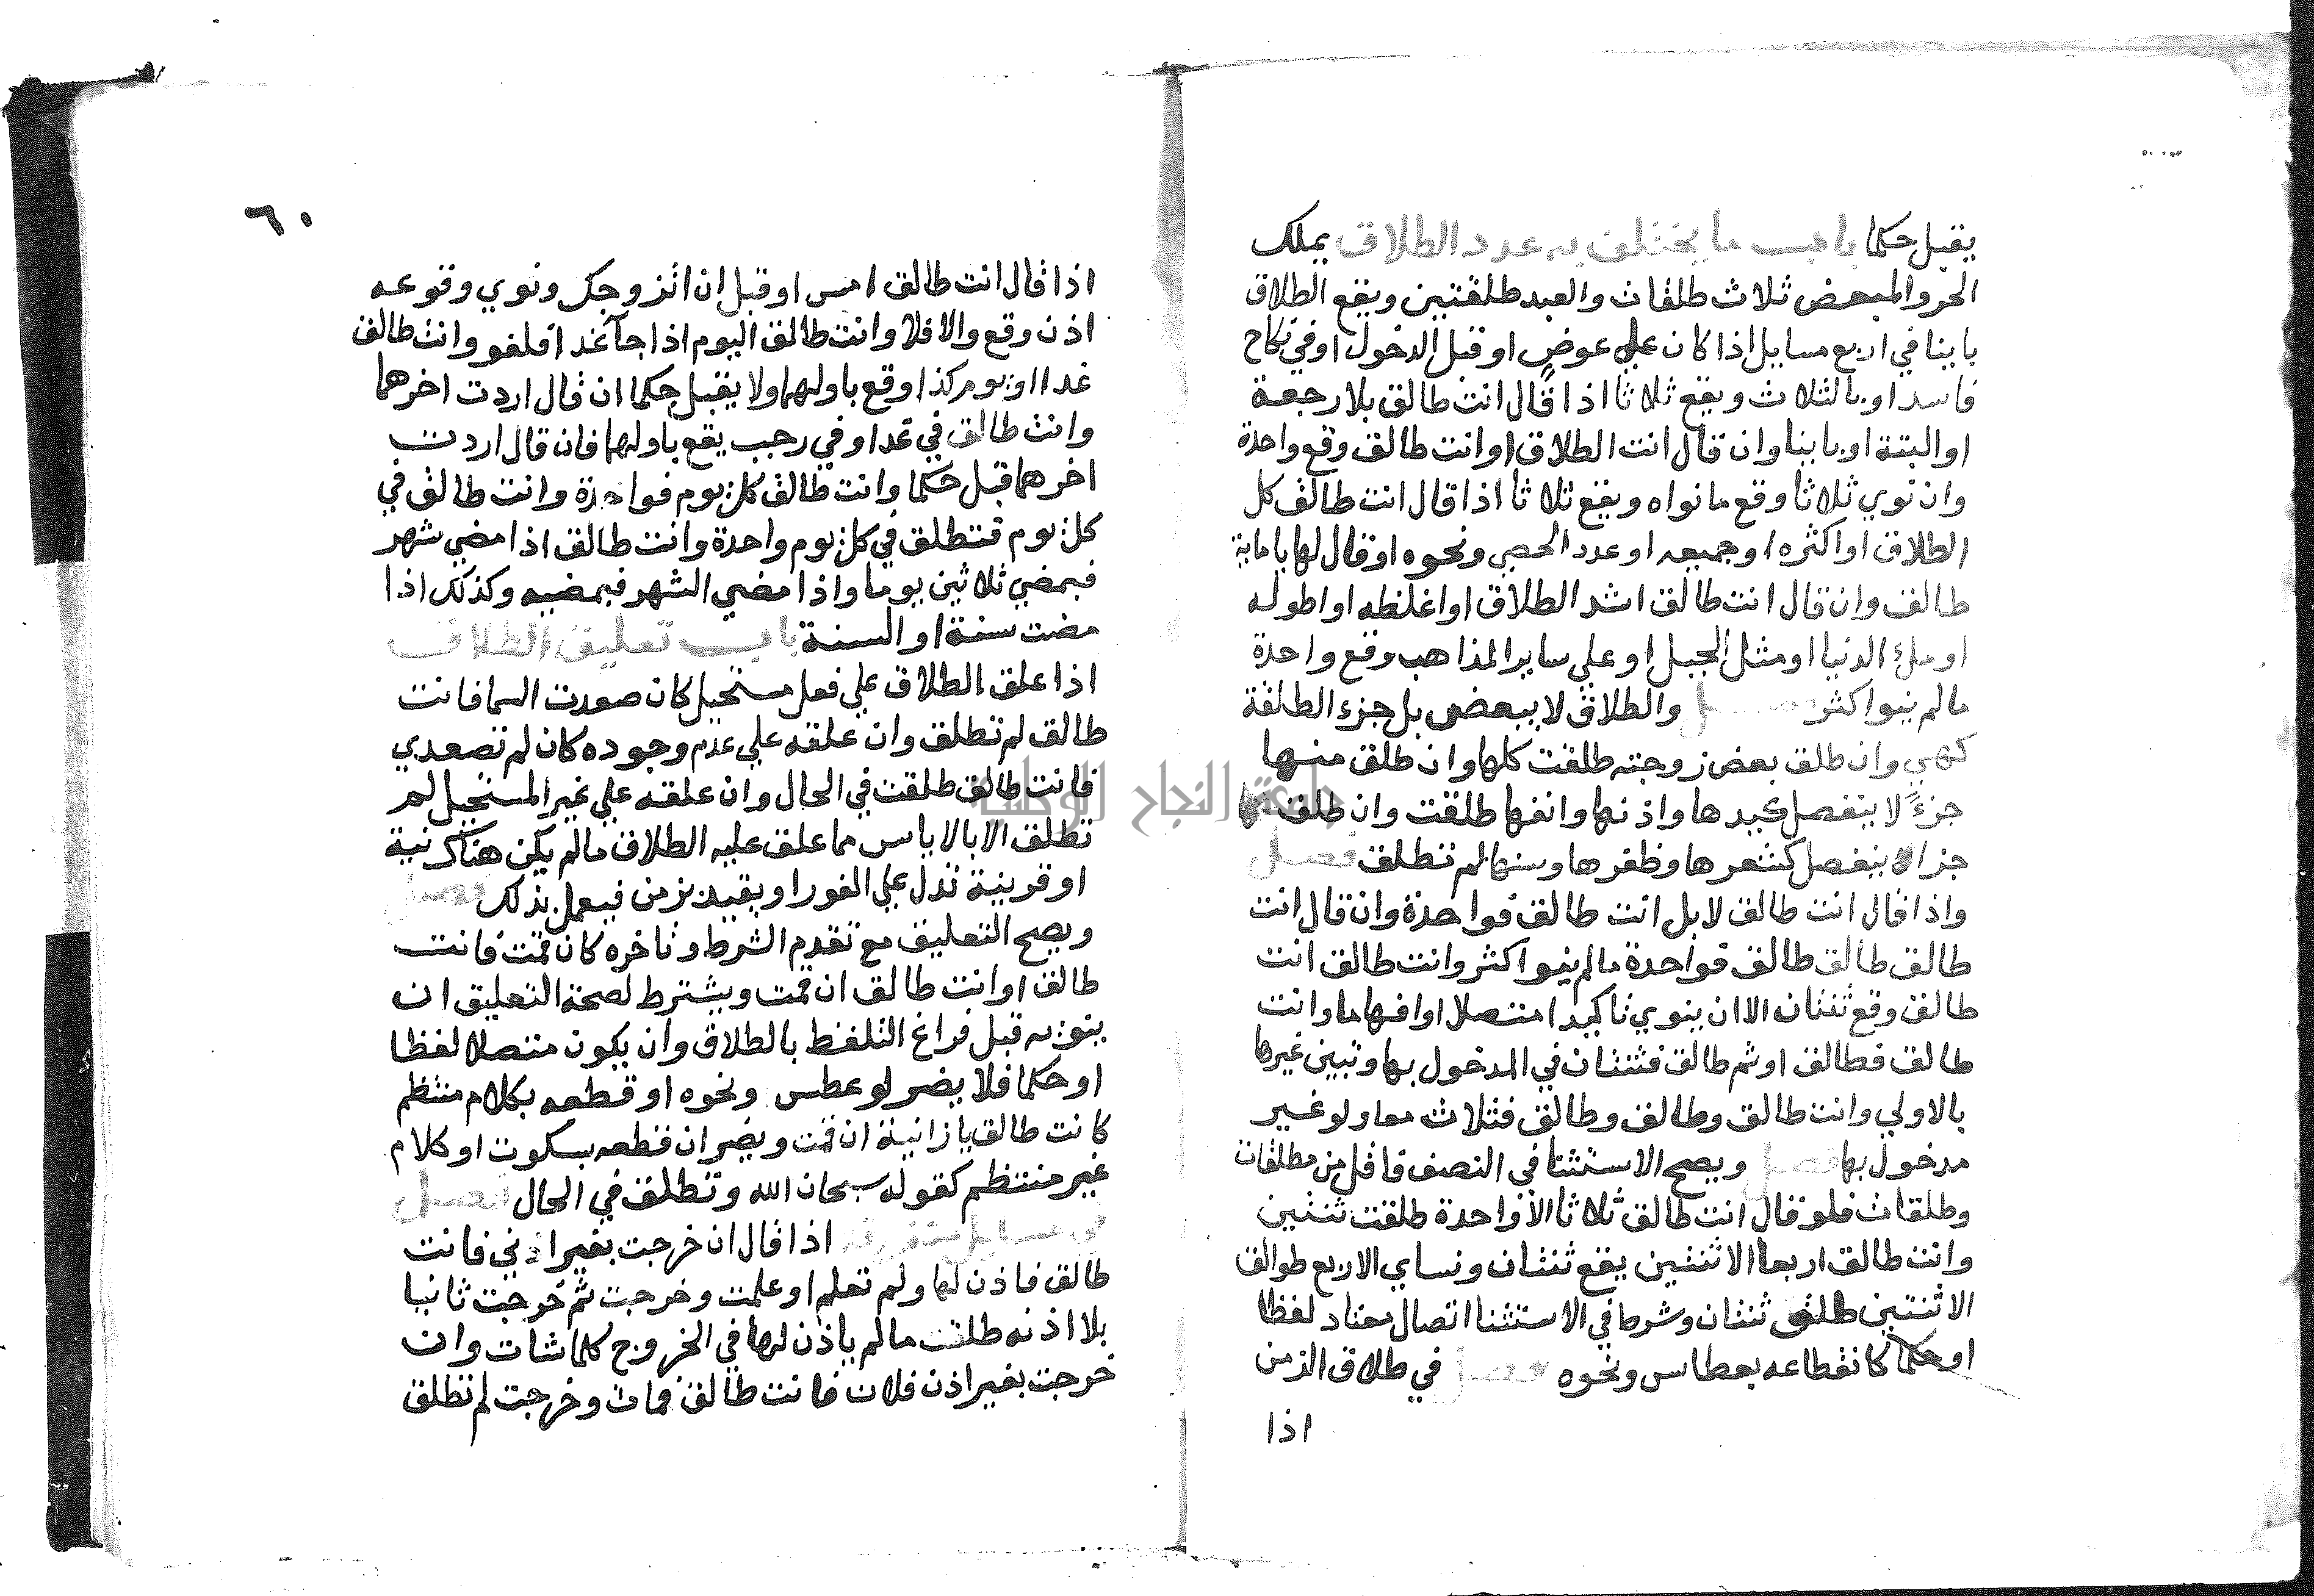 يقبل حكما باب ما يختلف به عدد الطلاق يملك
الحر والمبعض ثلاث طلقات والعبد طلقتين ويقع الطلاق
باينا في اربع مسايل اذا كان علي عوض او قبل الدخول او في نكاح
فاسد او بالثلاث ويقع ثلاثا اذا قال انت طالق بلا رجعة
او البتة او باينا وان قال انت الطلاق او انت طالق وقع واحدة
وان نوي ثلاثا وقع ما نواه ويقع ثلاثا اذا قال انت طالق كل
الطلاق او اكثره او جميعه او عدد الحصي ونحوه او قال لها يا ماية
طالق وان قال انت طالق اشد الطلاق او اغلظه او اطوله
او ملئ الدنيا او مثل الجبل او علي ساير المذاهب وقع واحدة
ما لم ينو اكثر فصل والطلاق لا يبعض بل جزء الطلقة
كهي وان طلق بعض زوجته طلقت كلها وان طلق منها
جزءً لا ينفصل كيدها واذنها وانفها طلقت وان طلق
جزا ينفصل كشعرها وظفرها وسنها لم تطلق فصل
واذا قال انت طالق لا بل انت طالق فواحدة وان قال انت
طالق طالق طالق فواحدة ما لم ينو اكثر وانت طالق انت
طالق وقع ثنتان الا ان ينوي تاكيدا متصلا او افهاما وانت
طالق فطالق او ثم طالق فثنتان في المدخول بها وتبين غيرها
بالاولي وانت طالق وطالق وطالق فثلاث معا ولو غير
مدخول بها فصل ويصح الاستثنا في النصف فاقل من مطلقات
وطلقات فلو قال انت طالق ثلاثا الا واحدة طلقت ثنتين
وانت طالق اربعا الا ثنتين يقع ثنتان ونساي الاربع طوالق
الا ثنتين طلق ثنتان وشرط في الاستثنا اتصال معتاد لفظا
او حكما كانقطاعه بعطاس ونحوه فصل في طلاق الزمن
اذا
٦٠
اذا قال انت طالق امس او قبل ان اتزوجك ونوي وقوعه
اذن وقع والا فلا وانت طالق اليوم اذا جآ غد فلغو وانت طالق
غدا او يوم كذا وقع باولهما ولا يقبل حكما ان قال اردت اخرهما
وانت طالق في غد او في رجب يقع باولهما فان قال اردت
اخرهما قبل حكما وانت طالق كل يوم فواحدة وانت طالق في
كل يوم فتطلق في كل يوم واحدة وانت طالق اذا مضي شهر
فبمضي ثلاثين يوما واذا مضي الشهر فبمضيه وكذلك اذا
مضت سنة او السنة باب تعليق الطلاق
اذا علق الطلاق علي فعل مستحيل كان صعدت السما فانت
طالق لم تطلق وان علقه علي عدم وجوده كان لم تصعدي
فانت طالق طلقت في الحال وان علقه علي غير المستحيل لم
تطلق الا بالاياس مما علق عليه الطلاق ما لم يكن هناك نية
او قرينة تدل علي الفور او يقيد بزمن فيعمل بذلك فصل
ويصح التعليق مع تقدم الشرط وتاخره كان قمت فانت
طالق او انت طالق ان قمت ويشترط لصحة التعليق ان
ينويه قبل فراغ التلفظ بالطلاق وان يكون متصلا لفظا
او حكما فلا يضر لو عطس ونحوه او قطعه بكلام منتظم
كانت طالق يا زانية ان قمت ويضر ان قطعه بسكوت او كلام
غير منتظم كقوله سبحان الله وتطلق في الحال فصل
في مسايل متفرقه اذا قال ان خرجت بغير اذني فانت
طالق فاذن لها ولم تعلم او علمت وخرجت ثم خرجت ثانيا
بلا اذنه طلقت ما لم ياذن لها في الخروج كلما شات وان
خرجت بغير اذن فلان فانت طالق فمات وخرجت لم تطلق
جامعة النجاح الوطنية